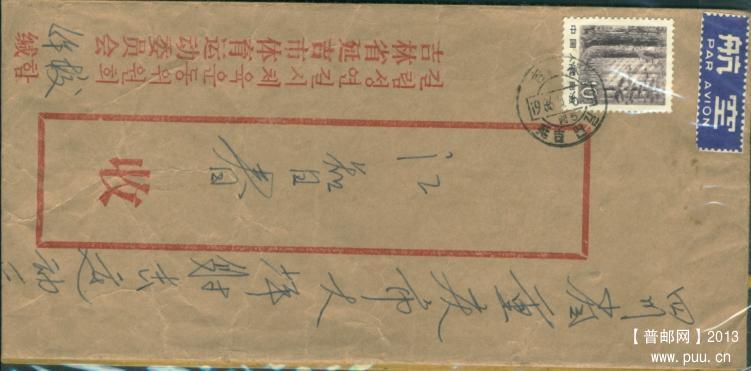 航空
PAR AVION
中国人民邮政
10
四川省重庆市大坪射击运动
收
吉林省延吉市体育运动委员会
길림성연길시체육운동위원회
体校
缄 함
【普邮网】2013
www.puu.cn